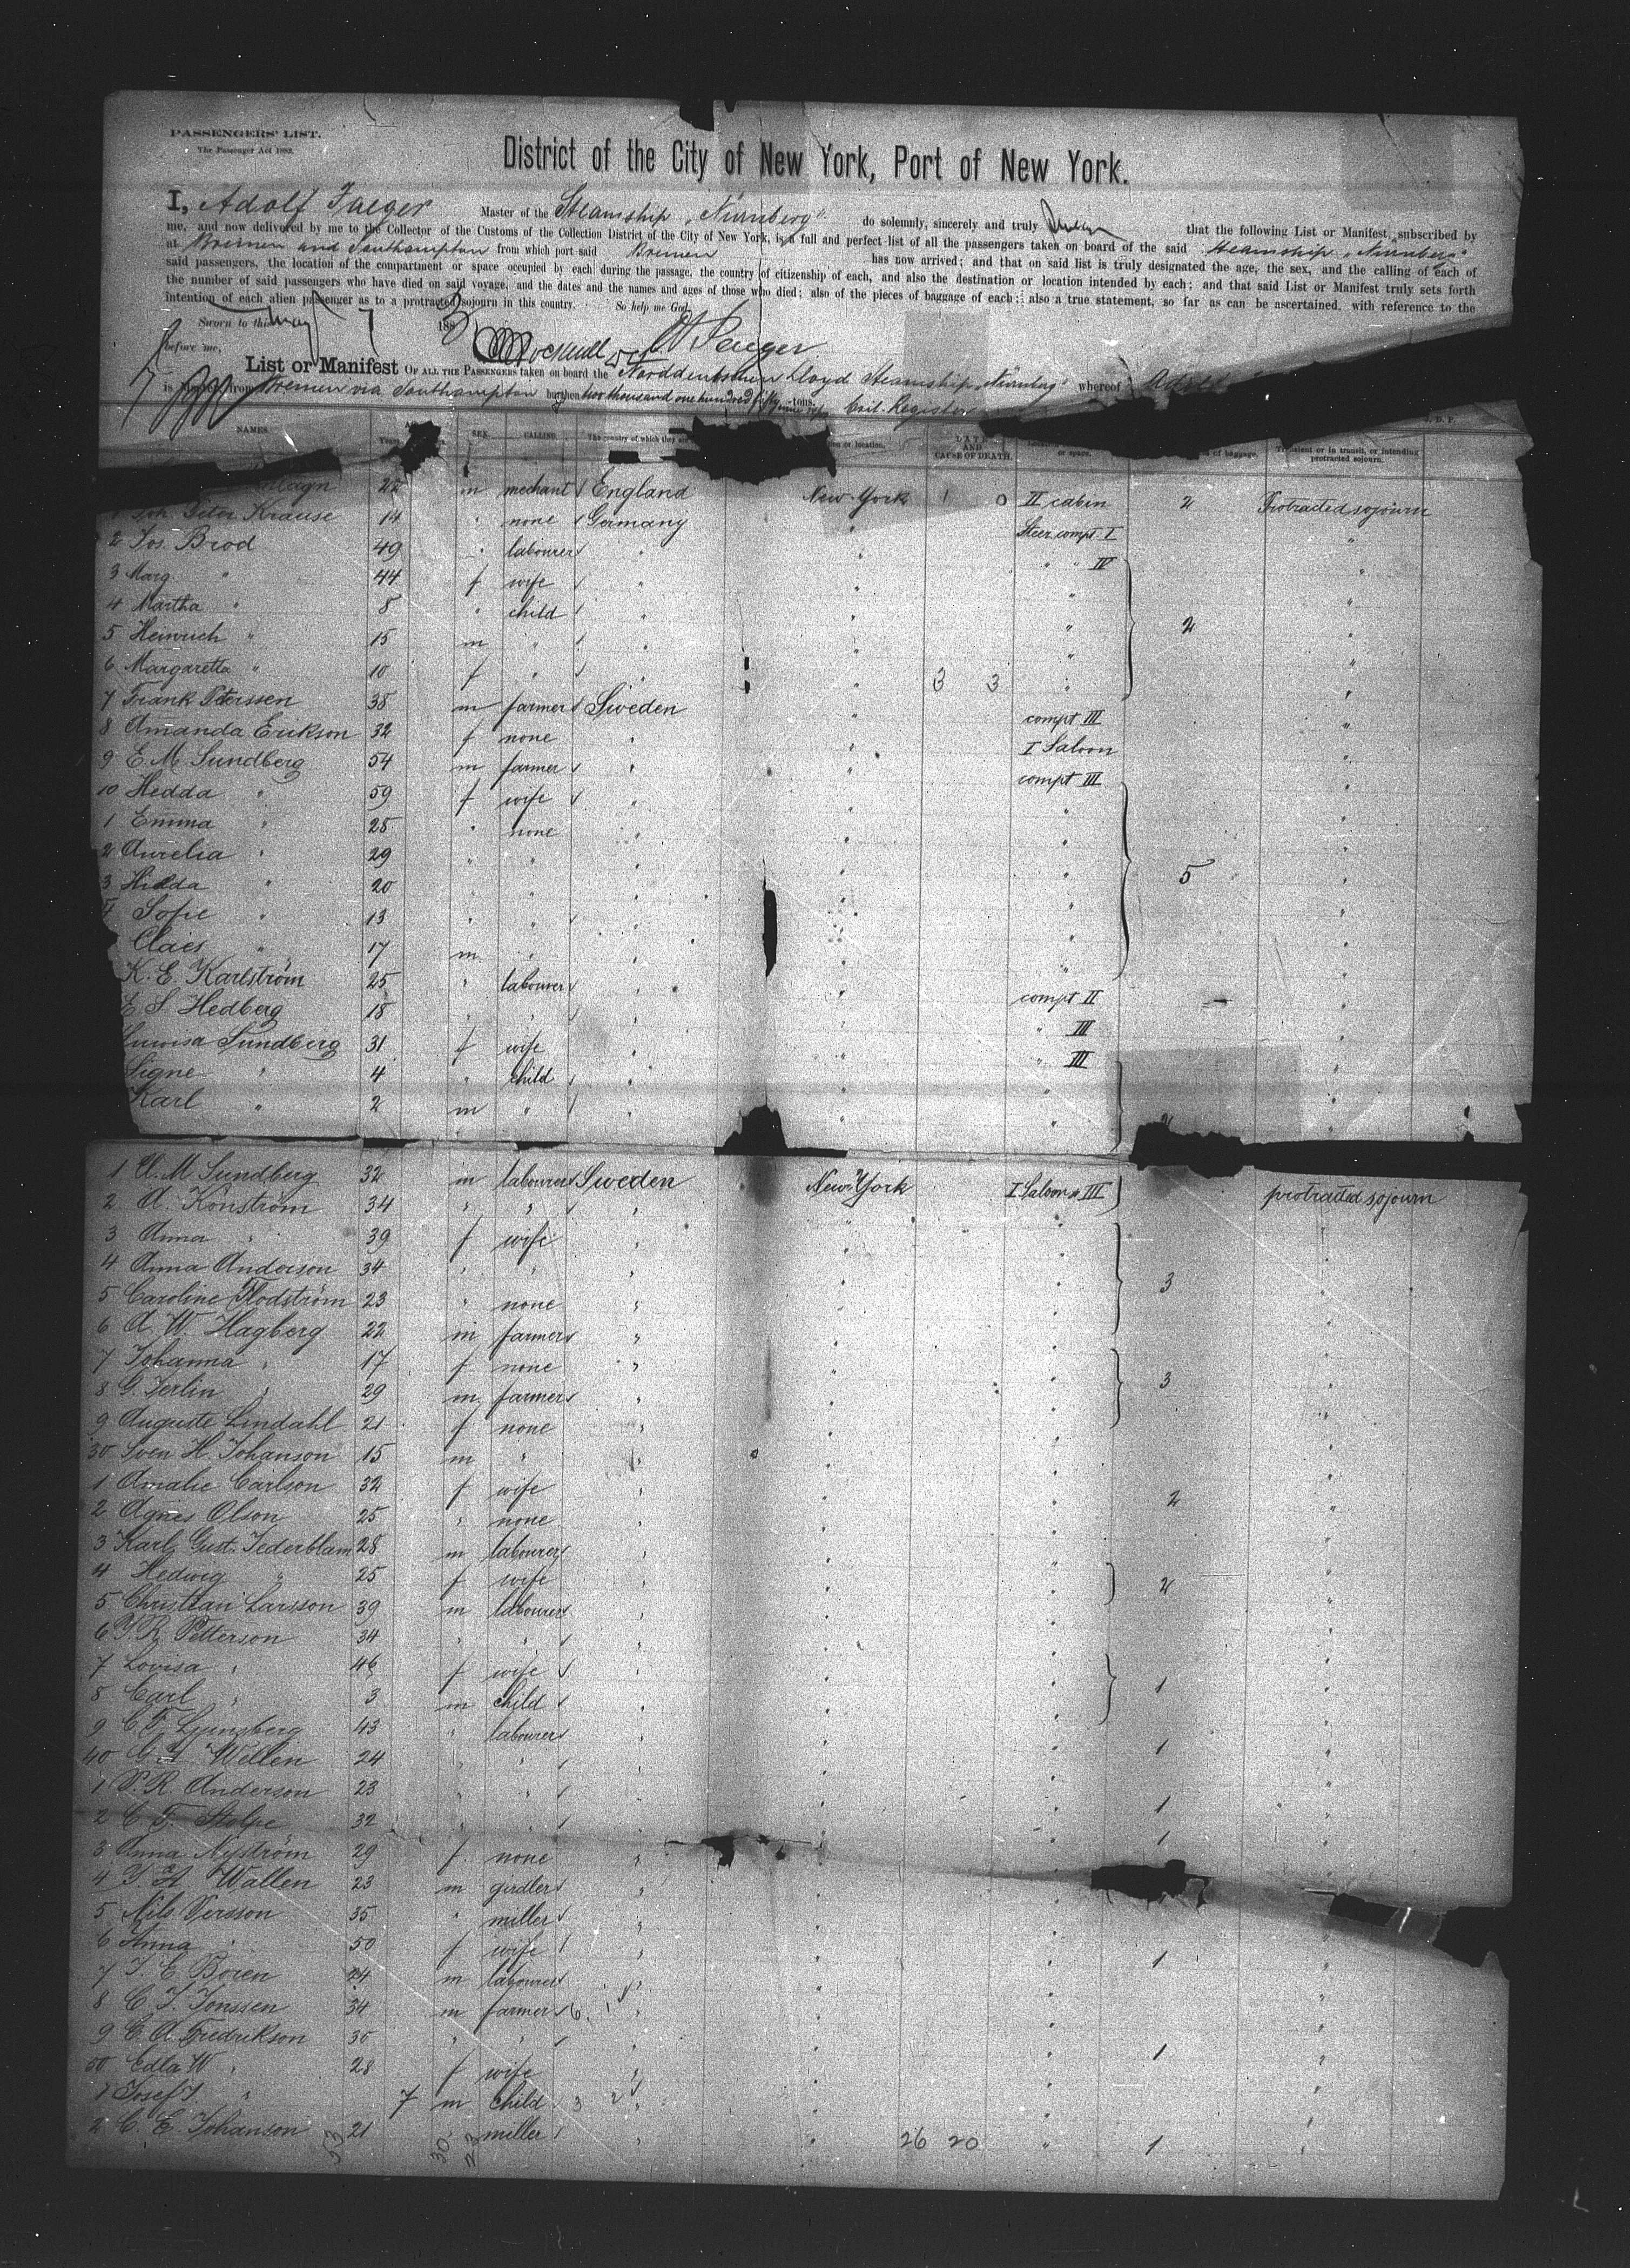 PASSENGERS' LIST.
The Passenger Act 1882.
District of the City of New York, Port of New York.
I, Adolf Jaeger Master of the Steamship "Nürnberg" do solemnly, sincerely and truly that the following List or Manifest, subscribed by
me, and now delivered by me to the Collector of the Customs of the Collection District of the City of New York, is a full and perfect list of all the passengers taken on board of the said Steamship "Nürnberg"
at Bremen and Southampton from which port said Bremen has now arrived; and that on said list is truly designated the age, the sex, and the calling of each of
said passengers, the location of the compartment or space occupied by each during the passage, the country of citizenship of each, and also the destination or location intended by each; and that said List or Manifest truly sets forth
the number of said passengers who have died on said voyage, and the dates and the names and ages of those who died; also of the pieces of baggage of each; also a true statement, so far as can be ascertained, with reference to the
intention of each alien passenger as to a protracted sojourn in this country. So help me God.
Sworn to this May 7 1883
before me, A Jaeger
List or Manifest OF ALL THE PASSENGERS taken on board the Norddeutschen Lloyd Steamship "Nürnberg" whereof Adolf
is Master, from Bremen via Southampton burthen two thousand one hundred fifty nine tons. Register
NAMES. Years SEX. CALLING. The country of which they are or location. DATE AND CAUSE OF DEATH. or space. of baggage. Transient or in transit, or intending protracted sojourn.
22 m mechant England New York 1 0 II cabin 2 Protracted sojourn
1 Joh. Peter Krause 14 " none Germany " Steer. compt I "
2 Jos. Brod 49 " labourer " " " " IV "
3 Marg. " 44 f wife " " " "
4 Martha " 8 " child " " " 2 "
5 Heinrich " 15 m " " " " "
6 Margaretta " 10 f " " " 3 3 " "
7 Frank Peterssen 38 m farmer Sweden " compt III "
8 Amanda Erikson 32 f none " " I Saloon "
9 E. M. Sundberg 54 m farmer " " compt III "
10 Hedda " 59 f wife " " " "
1 Emma " 28 " none " " " "
2 Aurelia " 29 " " " " " 5 "
3 Hilda " 20 " " " " " "
4 Sofie " 13 " " " " " "
Claes " 17 m " " " " "
K. E. Karlström 25 " labourer " " compt II "
E. S. Hedberg 18 " " " " " III "
Luovisa Sundberg 31 f wife " " " III "
Signe " 4 " child " " " "
Karl " 2 m " " " " 2 "
1 C. M. Sundberg 32 m labourer Sweden New York I Saloon III protracted sojourn
2 A. Könström 34 " " " " " "
3 Anna " 39 f wife " " " "
4 Anna Anderson 34 " " " " " 3 "
5 Caroline Flodström 23 " none " " " "
6 A. W. Hagberg 22 m farmer " " " "
7 Johanna " 17 f none " " " "
8 G. Jerlin " 29 m farmer " " " 3 "
9 Auguste Lindahl 21 f none " " " "
30 Sven H. Johanson 15 m " " " " "
1 Amalie Carlson 32 f wife " " " 2 "
2 Agnes Olson 25 " none " " " "
3 Karl Gust. Jederblam 28 m labourer " " " "
4 Hedwig " 25 f wife " " " 2 "
5 Christian Larsson 39 m labourer " " " "
6 P. R. Petterson 34 " " " " " "
7 Lovisa " 46 f wife " " " 1 "
8 Carl " 3 m child " " " "
9 C. F. Ljunsberg 43 " labourer " " " "
40 G. A. Wellen 24 " " " " " 1 "
1 P. R. Anderson 23 " " " " " 1 "
2 C. F. Stolpe 32 " " " " " 1 "
3 Anna Nyström 29 f none " " " "
4 J. A. Wallen 23 m girdler " " " "
5 Nils Persson 35 " miller " " " "
6 Anna " 50 f wife " " " 1 "
7 J. E. Boren 24 m labourer " " " "
8 C. J. Jonssen 34 m farmer 6. 1 " " " "
9 C. A. Fredrikson 35 " " " " " 1 "
50 Edla W. " 28 f wife " " " "
1 Josef J. " 7 m child 3 2 " " " "
2 C. E. Johanson 21 miller " " 26 20 " 1 "
53 30 23